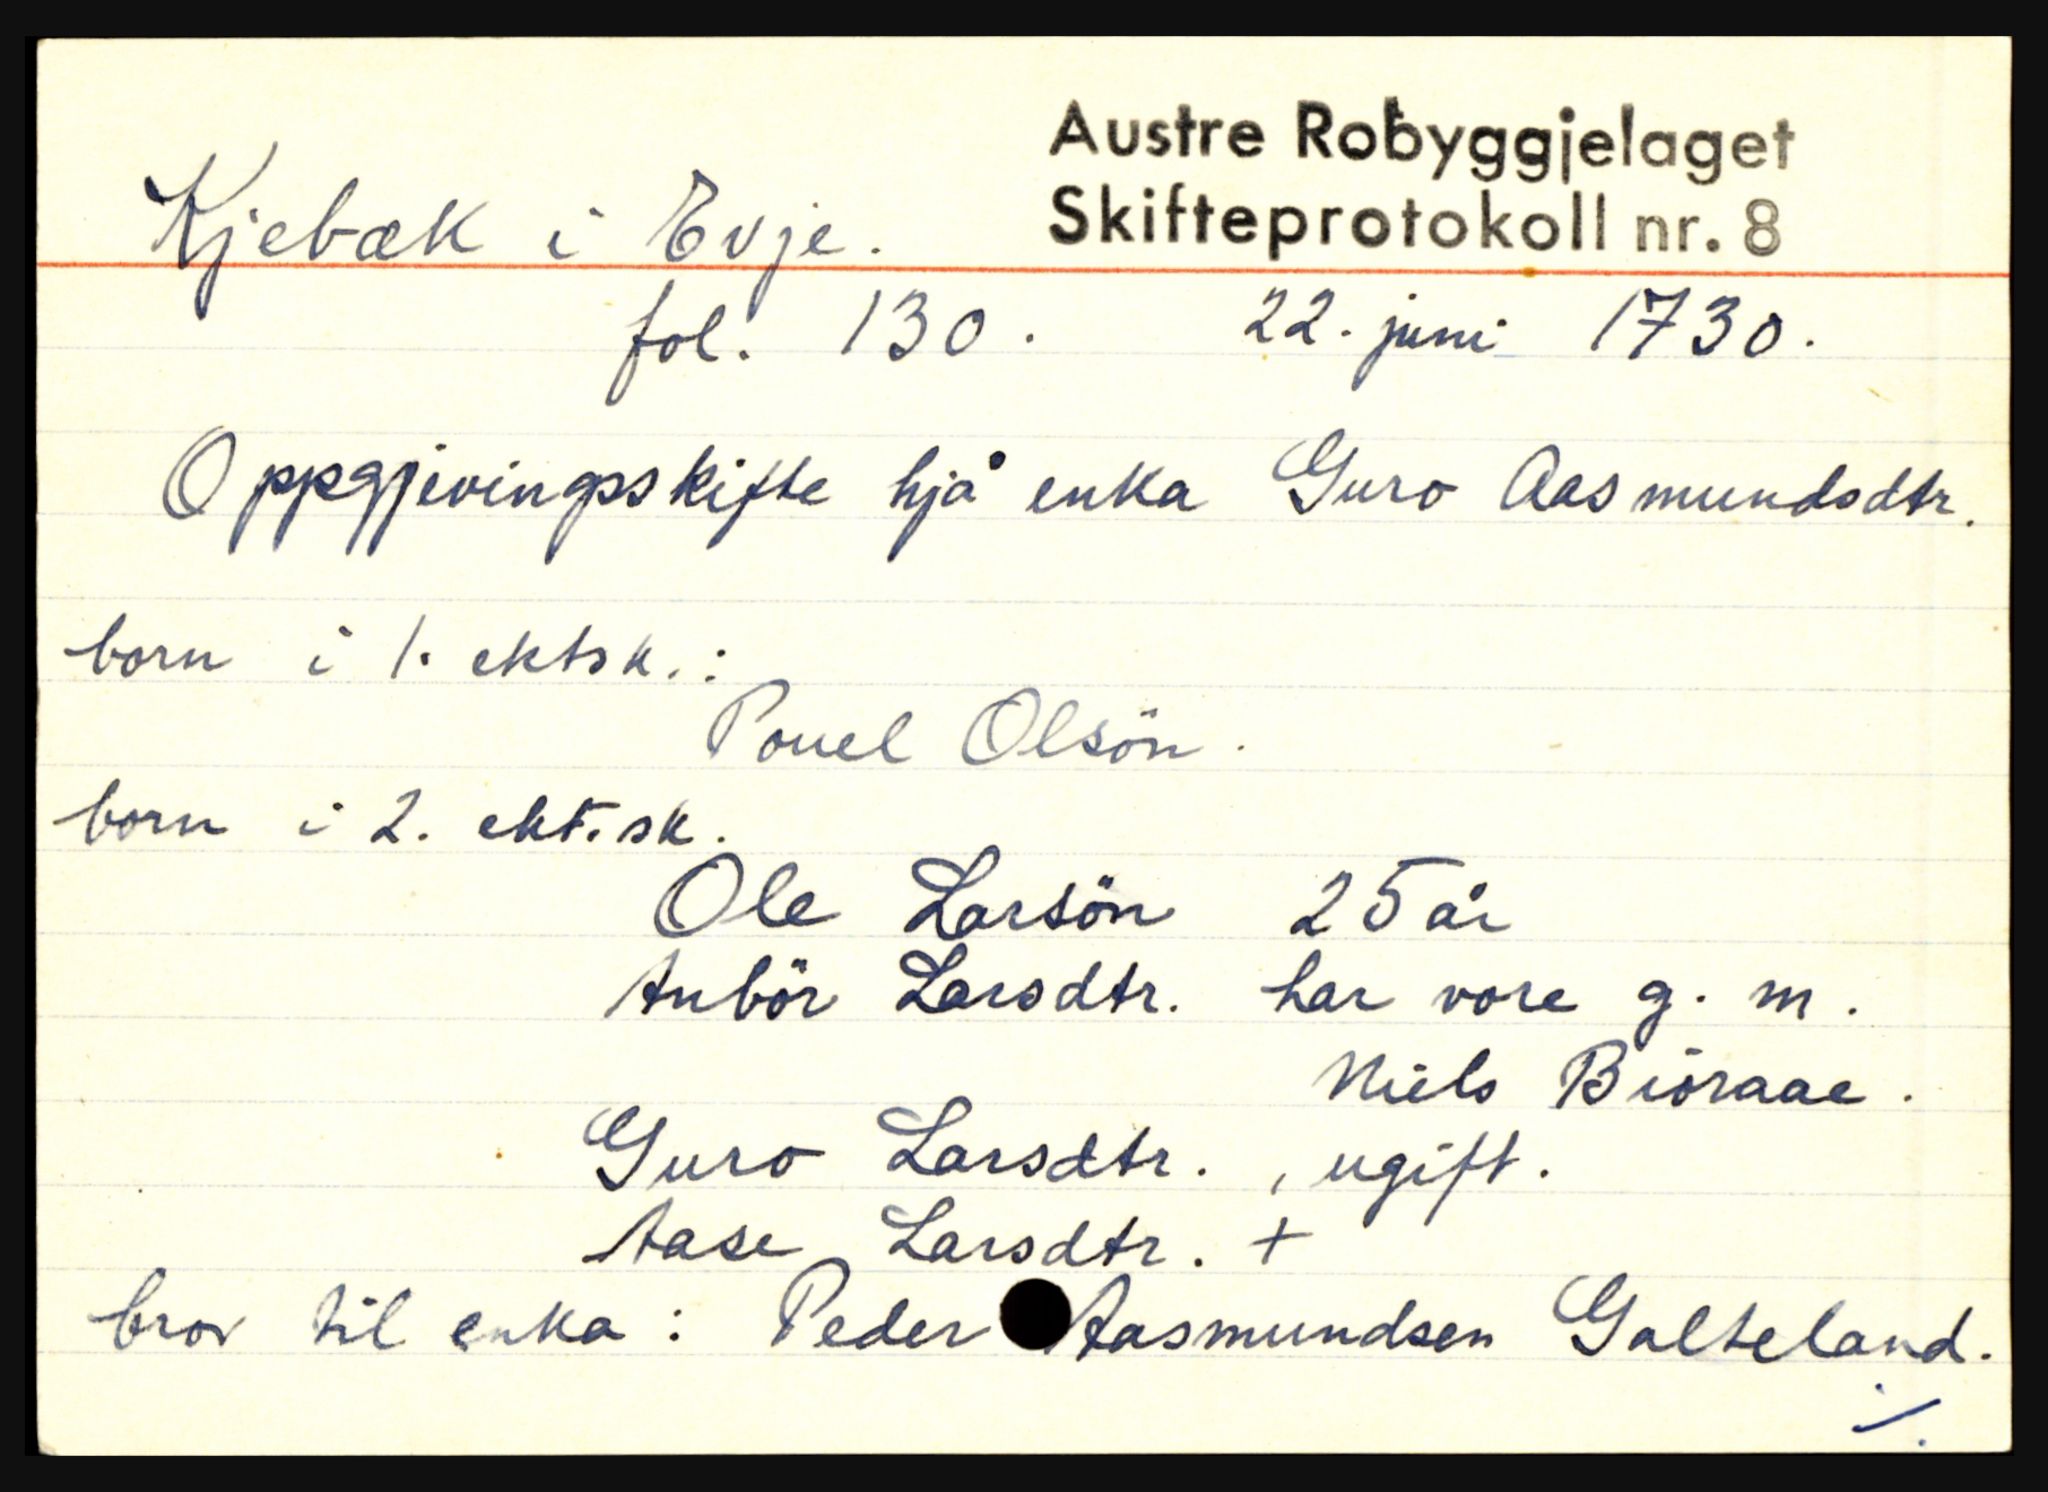 Austre Robyggjelaget
Skifteprotokoll nr. 8
Kjebæk i Evje.
fol. 130. 22. juni 1730.
Oppgjevingsskifte hjå enka Guro Aasmundsdtr.
born i 1. ektsk.:
Pouel Olsön.
born i 2. ekt.sk.
Ole Larsön 25 år
Anbör Larsdtr. har vore g. m.
Niels Biöraae.
Guro Larsdtr. , ugift.
Aase Larsdtr. +
bror til enka: Peder Aasmundsen Galteland.
./.